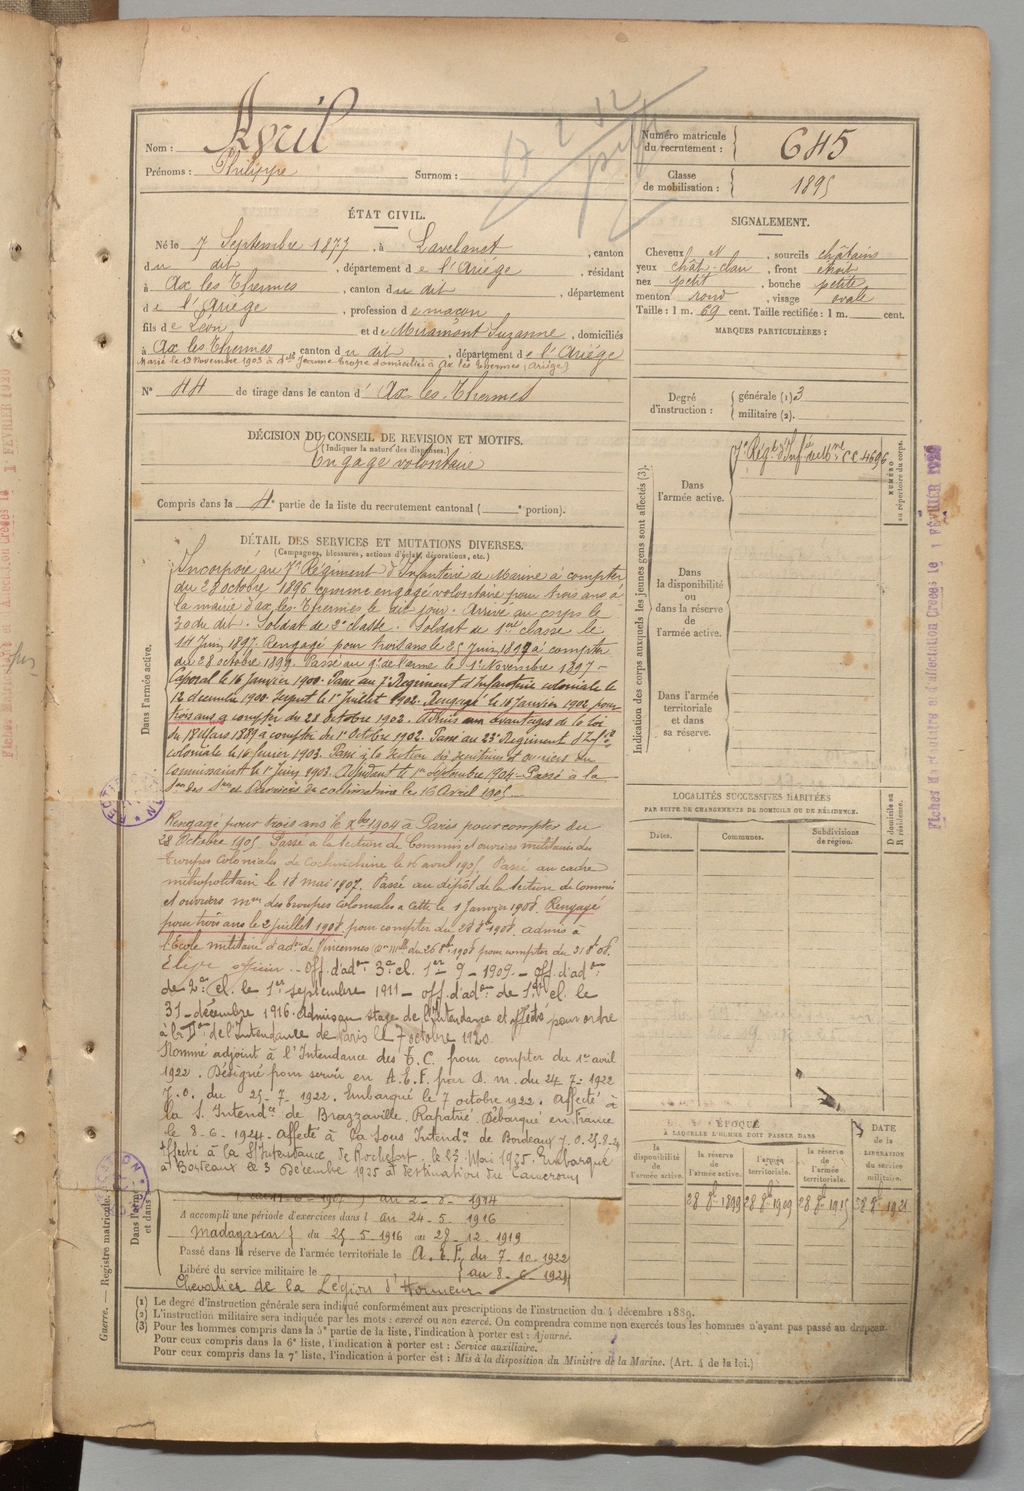 Nom : Avril
Prénoms : Philippe Surnom :
Numéro matricule du recrutement : 645
Classe de mobilisation : 1895
ÉTAT CIVIL.
Né le 7 Septembre 1877, à Lavelanet, canton
du dit, département de l'Ariége, résidant
à Ax les Thermes, canton du dit, département
de l'Ariége, profession de maçon
fils de Léon et de Miramont Suzanne, domiciliés
à Ax les Thermes, canton du dit, département de l'Ariége
Marié le 13 Novembre 1903 à Jeanne domiciliée à Ax les Thermes (Ariége)
N° 44 de tirage dans le canton d'Ax les Thermes
SIGNALEMENT.
Cheveux N, sourcils châtains
yeux chât. clair, front étroit
nez petit, bouche petite
menton rond, visage ovale
Taille : 1 m. 69 cent. Taille rectifiée : 1 m. cent.
MARQUES PARTICULIÈRES :
Degré d'instruction : générale (1) 3
militaire (2).
DÉCISION DU CONSEIL DE REVISION ET MOTIFS.
(Indiquer la nature des dispenses.)
Engagé volontaire
Compris dans la 4e partie de la liste du recrutement cantonal ( e portion).
Indication des corps auxquels les jeunes gens sont affectés (3).
Dans l'armée active.
7e Régt d'Infie de Mne CC 4696
NUMÉRO au répertoire du corps.
Dans la disponibilité ou dans la réserve de l'armée active.
Dans l'armée territoriale et dans sa réserve.
DÉTAIL DES SERVICES ET MUTATIONS DIVERSES.
(Campagnes, blessures, actions d'éclat, décorations, etc.)
Dans l'armée active.
Incorporé au 7e Régiment d'Infanterie de Marine à compter
du 28 octobre 1896 comme engagé volontaire pour trois ans à
la mairie d'Ax les Thermes le dit jour. Arrivé au corps le
30 du dit. Soldat de 2e classe. Soldat de 1ere classe le
14 Juin 1897. Rengagé pour trois ans le 25 Juin 1897 à compter
du 28 octobre 1899. Passé au 9e de l'arme le 1er Novembre 1897 -
Caporal le 16 Janvier 1900. Passé au 7e Régiment d'Infanterie coloniale le
12 decembre 1900. Sergent le 1er Juillet 1902. Rengagé le 16 Janvier 1902 pour
trois ans à compter du 28 octobre 1902. Admis aux avantages de la loi
du 18 Mars 1889 à compter du 1er Octobre 1902. Passé au 23e Régiment d'Infie
coloniale le 16 février 1903. Passé à la Section des secrétaires et ouvriers du
Commissariat le 1er Juin 1903. Adjudant le 1er septembre 1904 - Passé à la
le 16 Avril 1905
Rengagé pour trois ans le 1904 à Paris pour compter du
28 Octobre 1905. Passé à la section de Commis et ouvriers militaires des
Troupes Coloniales de Cochinchine le 16 avril 1905. Passé au cadre
métropolitain le 18 mai 1907. Passé au dépôt de la section de Commis
et ouvriers mres des troupes Coloniales à Cette le 1 Janvier 1908. Rengagé
pour trois ans le 2 juillet 1908 pour compter du 28 8bre 1908. admis à
l'École militaire d'adon de Vincennes (Don Mlle du 26 8bre 1908 pour compter du 31 8bre 08.
Elève officier. - Off. d'adon 3e cl. 1er 9 - 1909. - Off. d'adon
de 2e cl. le 1er septembre 1911 - off. d'adon de 1ère cl. le
31 décembre 1916. Admis au stage de l'Intendance et affecté pour ordre
à la Don de l'Intendance de Paris le 7 octobre 1920.
Nommé adjoint à l'Intendance des T.C. pour compter du 1er avril
1922. Désigné pour servir en A.E.F. par D.m. du 24-7-1922
J.O. du 25-7-1922. Embarqué le 7 octobre 1922. Affecté à
la S. Intendce de Brazzaville. Rapatrié. Débarqué en France
le 8-6-1924. Affecté à la Sous Intendce de Bordeaux J.O. 25-8-24
Affecté à la S/Intendance de Rochefort, le 23 Mai 1925. Embarqué
à Bordeaux le 3 Décembre 1925 à destination du Cameroun
au 2-8-1914
A accompli une période d'exercices dans l au 24-5-1916
Madagascar du 25-5-1916 au 28-12-1919
Passé dans la réserve de l'armée territoriale le A.E.F. du 7-10-1922
Libéré du service militaire le au 8-6-1924
Chevalier de la Légion d'Honneur
LOCALITÉS SUCCESSIVES HABITÉES
PAR SUITE DE CHANGEMENTS DE DOMICILE OU DE RÉSIDENCE.
Dates. Communes. Subdivisions de région. D domicile ou R résidence.
ÉPOQUE
À LAQUELLE L'HOMME DOIT PASSER DANS
la disponibilité de l'armée active. la réserve de l'armée active. l'armée territoriale. la réserve de l'armée territoriale.
DATE de la LIBÉRATION du service militaire.
28 8bre 1899 28 8bre 1909 28 8bre 1915 28 8bre 1921
Guerre. — Registre matricule.
(1) Le degré d'instruction générale sera indiqué conformément aux prescriptions de l'instruction du 4 décembre 1889.
(2) L'instruction militaire sera indiquée par les mots : exercé ou non exercé. On comprendra comme non exercés tous les hommes n'ayant pas passé au drapeau.
(3) Pour les hommes compris dans la 5e partie de la liste, l'indication à porter est : Ajourné.
Pour ceux compris dans la 6e liste, l'indication à porter est : Service auxiliaire.
Pour ceux compris dans la 7e liste, l'indication à porter est : Mis à la disposition du Ministre de la Marine. (Art. 4 de la loi.)
Fiches Matriculaire et d'affectation Créées le 1 FÉVRIER 1920